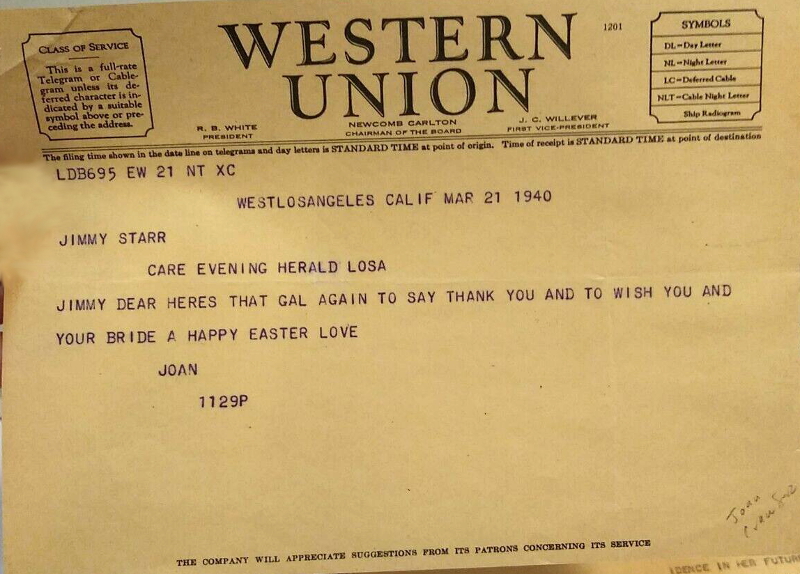 CLASS OF SERVICE
This is a full-rate
Telegram or Cable-
gram unless its de-
ferred character is in-
dicated by a suitable
symbol above or pre-
ceding the address.
WESTERN
UNION
1201
R. B. WHITE
PRESIDENT
NEWCOMB CARLTON
CHAIRMAN OF THE BOARD
J. C. WILLEVER
FIRST VICE-PRESIDENT
SYMBOLS
DL=Day Letter
NL=Night Letter
LC=Deferred Cable
NLT=Cable Night Letter
Ship Radiogram
The filing time shown in the date line on telegrams and day letters is STANDARD TIME at point of origin. Time of receipt is STANDARD TIME at point of destination
LDB695 EW 21 NT XC
WESTLOSANGELES CALIF MAR 21 1940
JIMMY STARR
CARE EVENING HERALD LOSA
JIMMY DEAR HERES THAT GAL AGAIN TO SAY THANK YOU AND TO WISH YOU AND
YOUR BRIDE A HAPPY EASTER LOVE
JOAN
1129P
Joan
THE COMPANY WILL APPRECIATE SUGGESTIONS FROM ITS PATRONS CONCERNING ITS SERVICE
IN HER FUTURE